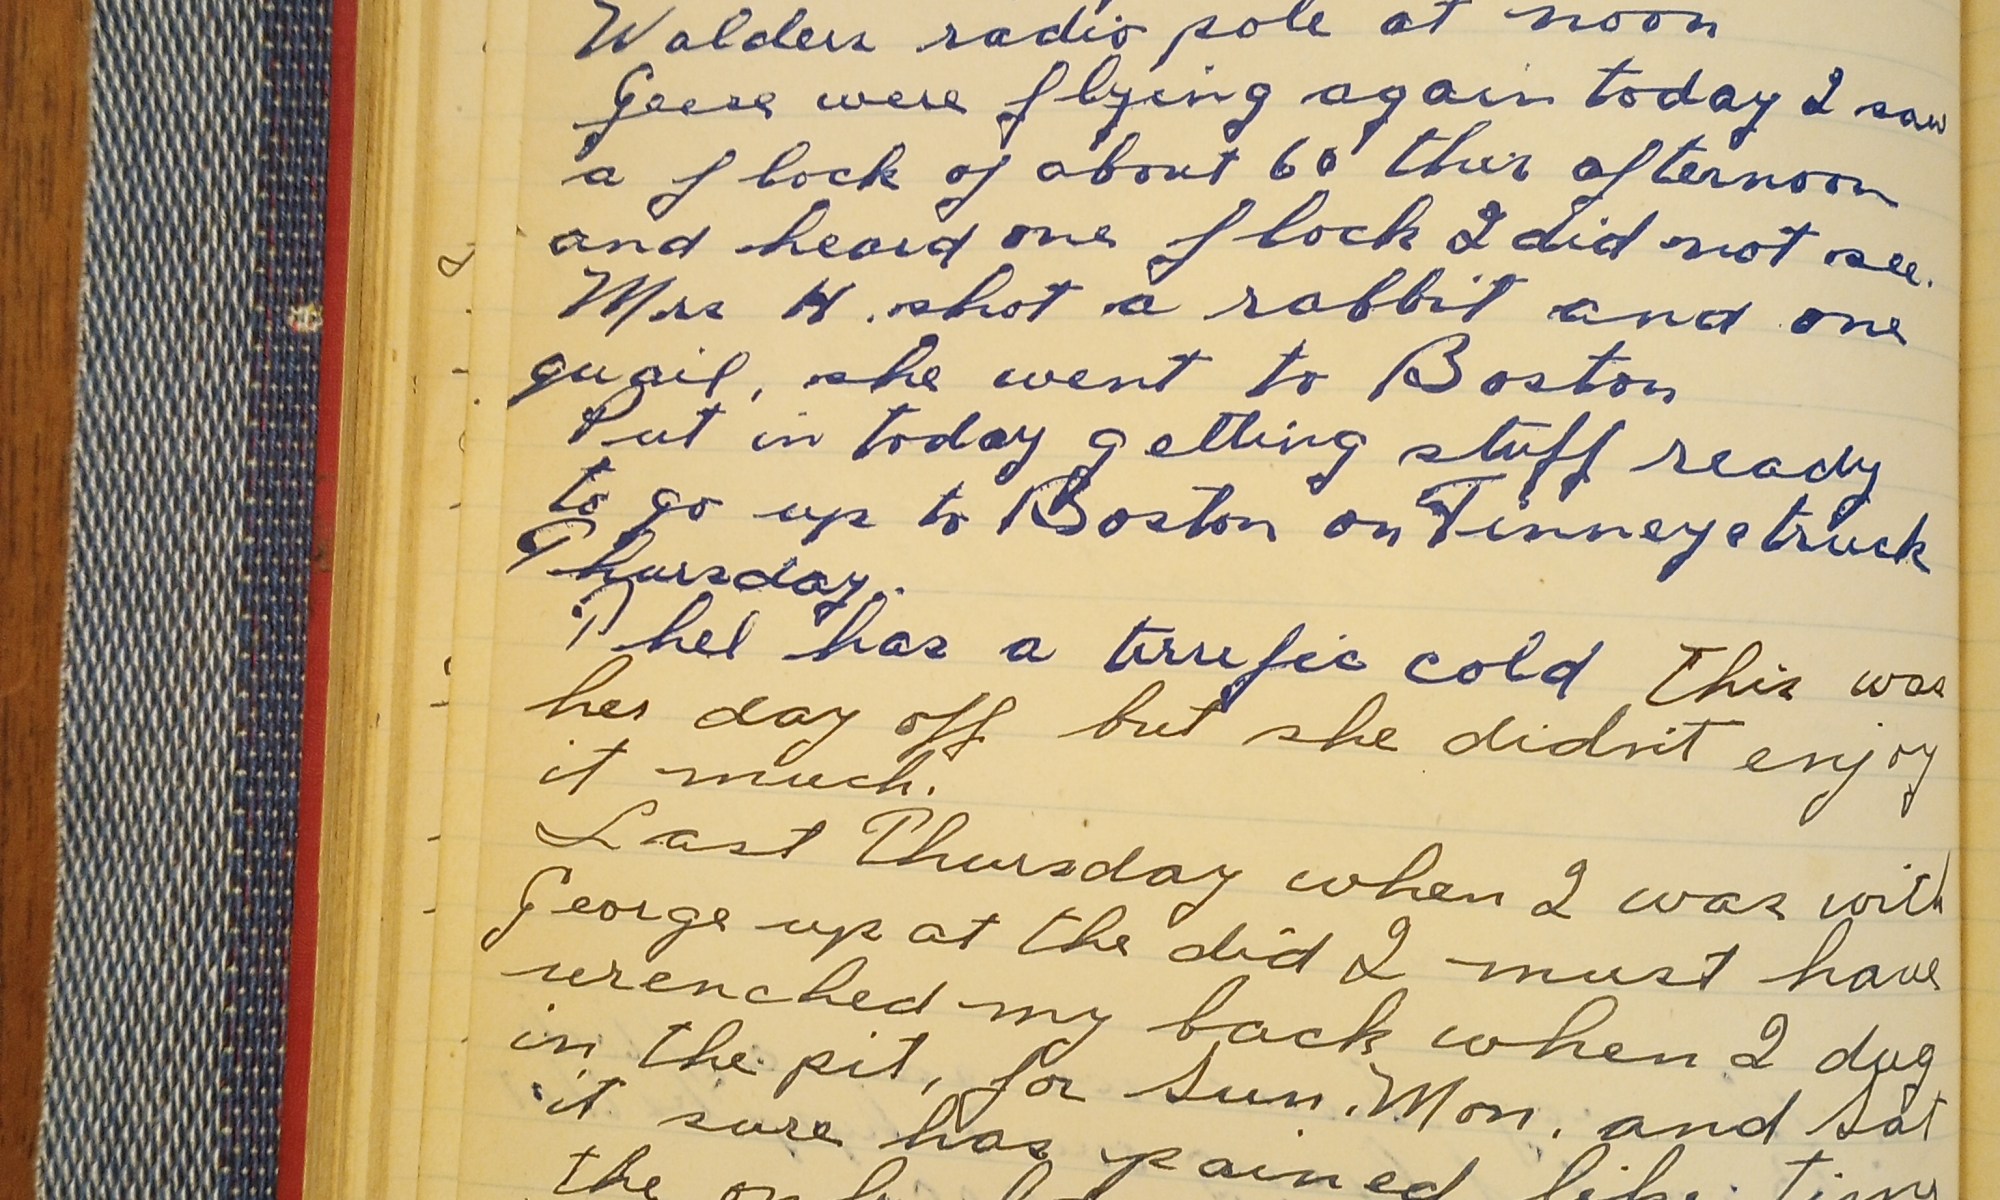 Walders radio pole at noon
Geese were flying again today I saw
a flock of about 60 this afternoon
and heard one flock I did not see.
Mrs H. shot a rabbit and one
quail, she went to Boston
Put in today getting stuff ready
to go up to Boston on Finneys truck
Thursday.
Thel has a terrific cold This was
her day off but she didn't enjoy
it much.
Last Thursday when I was with
George up at the did I must have
wrenched my back when I dug
in the pit, for Sun. Mon. and Sat
it sure has pained like
the only